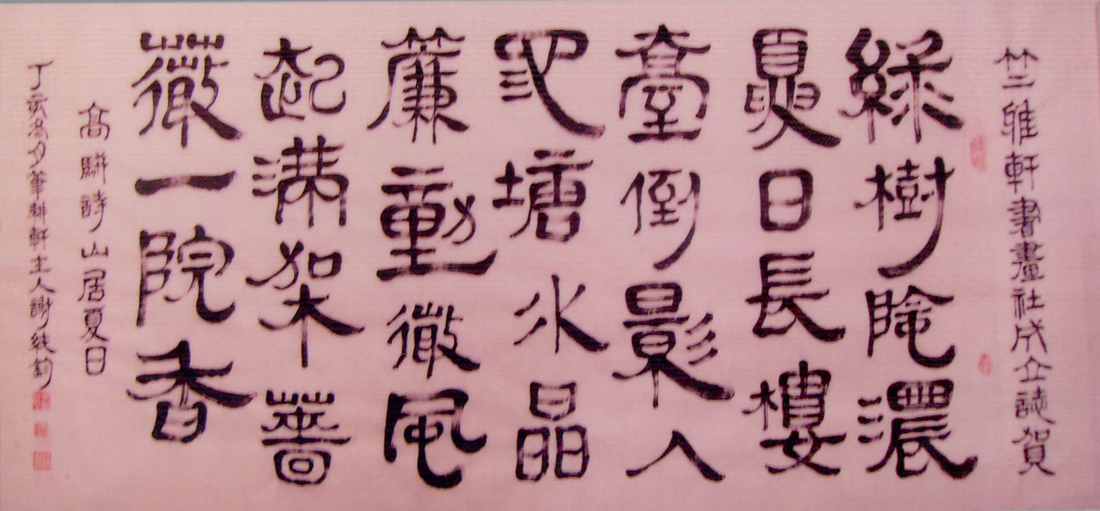 竺雅軒書畫社成立誌賀
綠樹陰濃
夏日長樓
臺倒影入
池塘水晶
簾動微風
起滿架薔
薇一院香
高駢詩山居夏日
丁亥 夕筆耕軒主人謝